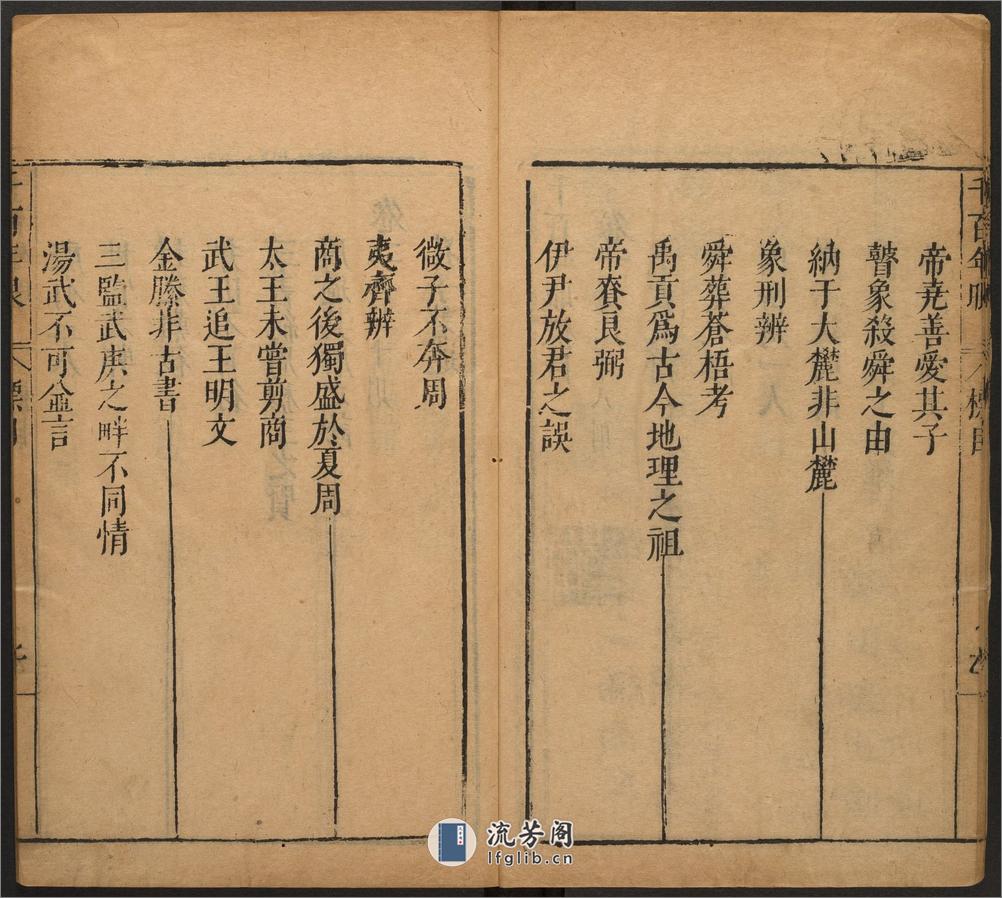 千百年眼
標目
帝堯善愛其子
瞽象殺舜之由
納于大麓非山麓
象刑辨
舜葬蒼梧考
禹貢爲古今地理之祖
帝賚良弼
伊尹放君之誤
微子不奔周
夷齊辨
商之後獨盛於夏周
太王未嘗剪商
武王追王明文
金縢非古書
三監武庚之畔不同情
湯武不可並言
流芳阁
lfglib.cn